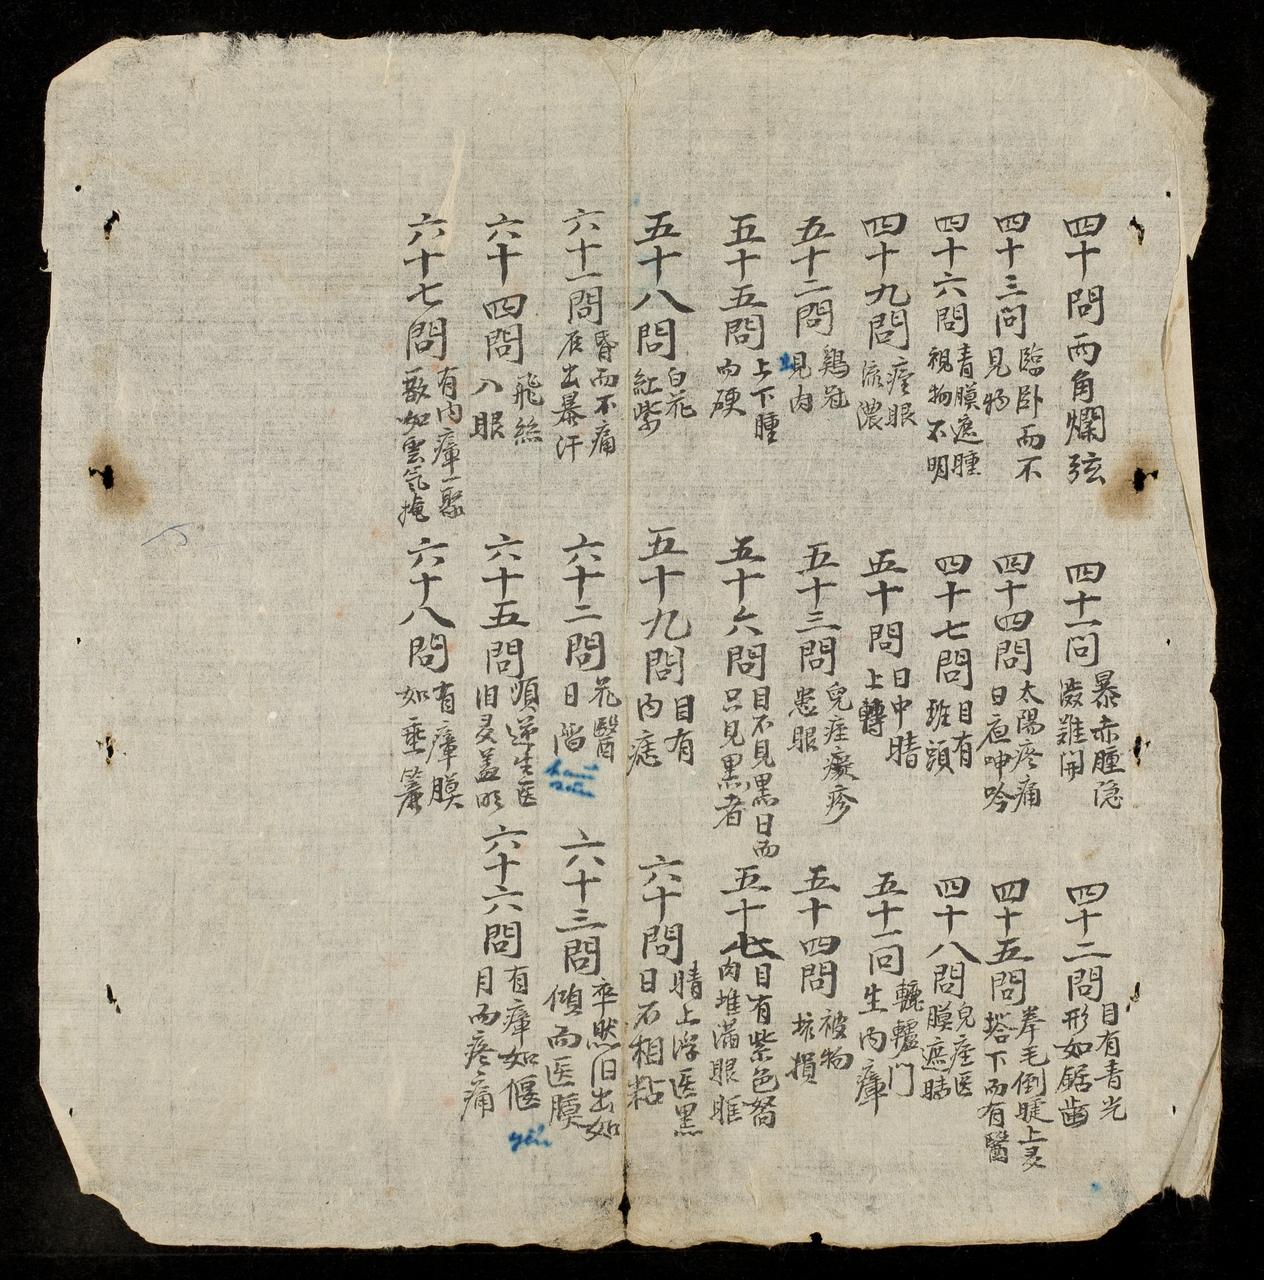 四十問 両角爛弦
四十一問 暴赤腫隐澁難開
四十二問 目有青光形如鋸齒
四十三问 臨卧而不見物
四十四問 太陽疼痛日夜呻吟
四十五問 拳毛倒睫上㚆搭下而有醫
四十六問 青膜遮睡視物不明
四十七問 目有班頭
四十八問 兒疰医膜遮睛
四十九問 疰眼流濃
五十問 日中睛上轉
五十一问 轆轤门生内瘴
五十二問 鷄冠見肉
五十三問 兒疰癡疹患眼
五十四問 被物坎損
五十五問 上下腫而硬
五十六問 目不見黑日而只見黑者
五十七 目有紫色胬肉堆滿眼眶
五十八問 白花紅紫
五十九問 目有内痣
六十問 睛上浮医黑日不相粘
六十一問 昏而不痛后出暴汗
六十二問 花醫日陷
六十三問 卒然旧出如傾而医膜
六十四問 飛絲入眼
六十五問 順逆生医旧㚆盖
六十六問 有瘴如偃月而疼痛
yển
六十七問 有内瘴一聚散如雲氣掩
六十八問 有瘴膜如垂簾